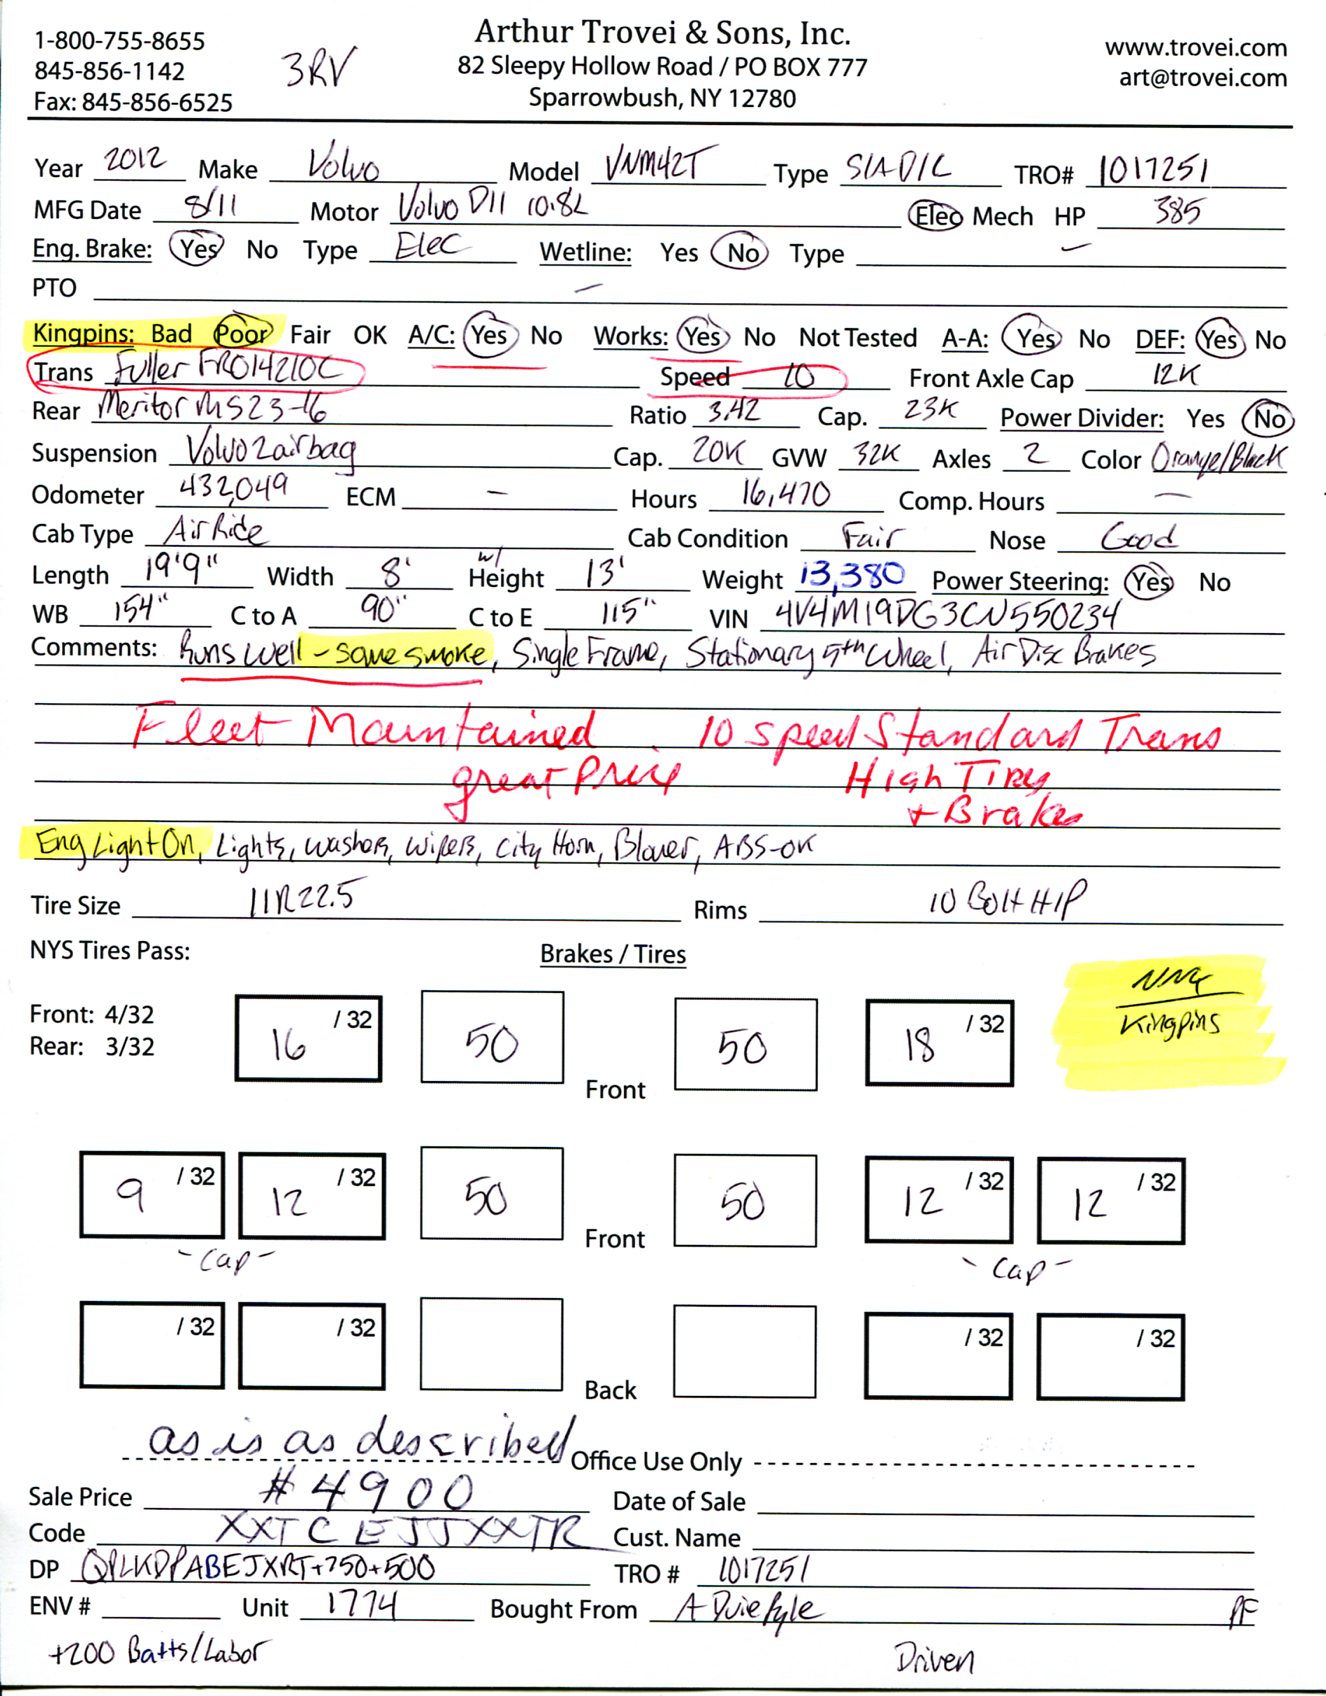 Arthur Trovei & Sons, Inc.
1-800-755-8655 www.trovei.com
845-856-1142 3RV 82 Sleepy Hollow Road / PO BOX 777 art@trovei.com
Fax: 845-856-6525 Sparrowbush, NY 12780
Year 2012 Make Volvo Model VNM42T Type S/A D/C TRO# 1017251
MFG Date 8/11 Motor Volvo D11 10.8L Elec Mech HP 385
Eng. Brake: Yes No Type Elec Wetline: Yes No Type —
PTO —
Kingpins: Bad Poor Fair OK A/C: Yes No Works: Yes No Not Tested A-A: Yes No DEF: Yes No
Trans Fuller FRO14210C Speed 10 Front Axle Cap 12K
Rear Meritor MS23-16 Ratio 3.42 Cap. 23K Power Divider: Yes No
Suspension Volvo 2 airbag Cap. 20K GVW 32K Axles 2 Color Orange/Black
Odometer 432,049 ECM — Hours 16,470 Comp. Hours —
Cab Type Air Ride Cab Condition Fair Nose Good
Length 19'9" Width 8' w/ Height 13' Weight 13,380 Power Steering: Yes No
WB 154" C to A 90" C to E 115" VIN 4V4M19DG3CN550234
Comments: Runs well - some smoke, Single Frame, Stationary 5th Wheel, Air Disc Brakes
Fleet Maintained 10 Speed Standard Trans
great Price High Tires
+ Brakes
Eng Light On, Lights, washers, wipers, City Horn, Blower, ABS-OK
Tire Size 11R22.5 Rims 10 Bolt H/P
NYS Tires Pass: Brakes / Tires
Front: 4/32
Rear: 3/32
16 /32 50 50 18 /32
Kingpins
Front
9 /32 12 /32 50 50 12 /32 12 /32
Front
-Cap- -Cap-
/32 /32 /32 /32
Back
as is as described Office Use Only
Sale Price #4900 Date of Sale
Code XXTCEJJXXTR Cust. Name
DP QPLKDPABEJXRT+750+500 TRO # 1017251
ENV # Unit 1774 Bought From A Duie Pyle PF
+200 Batts/Labor Driven